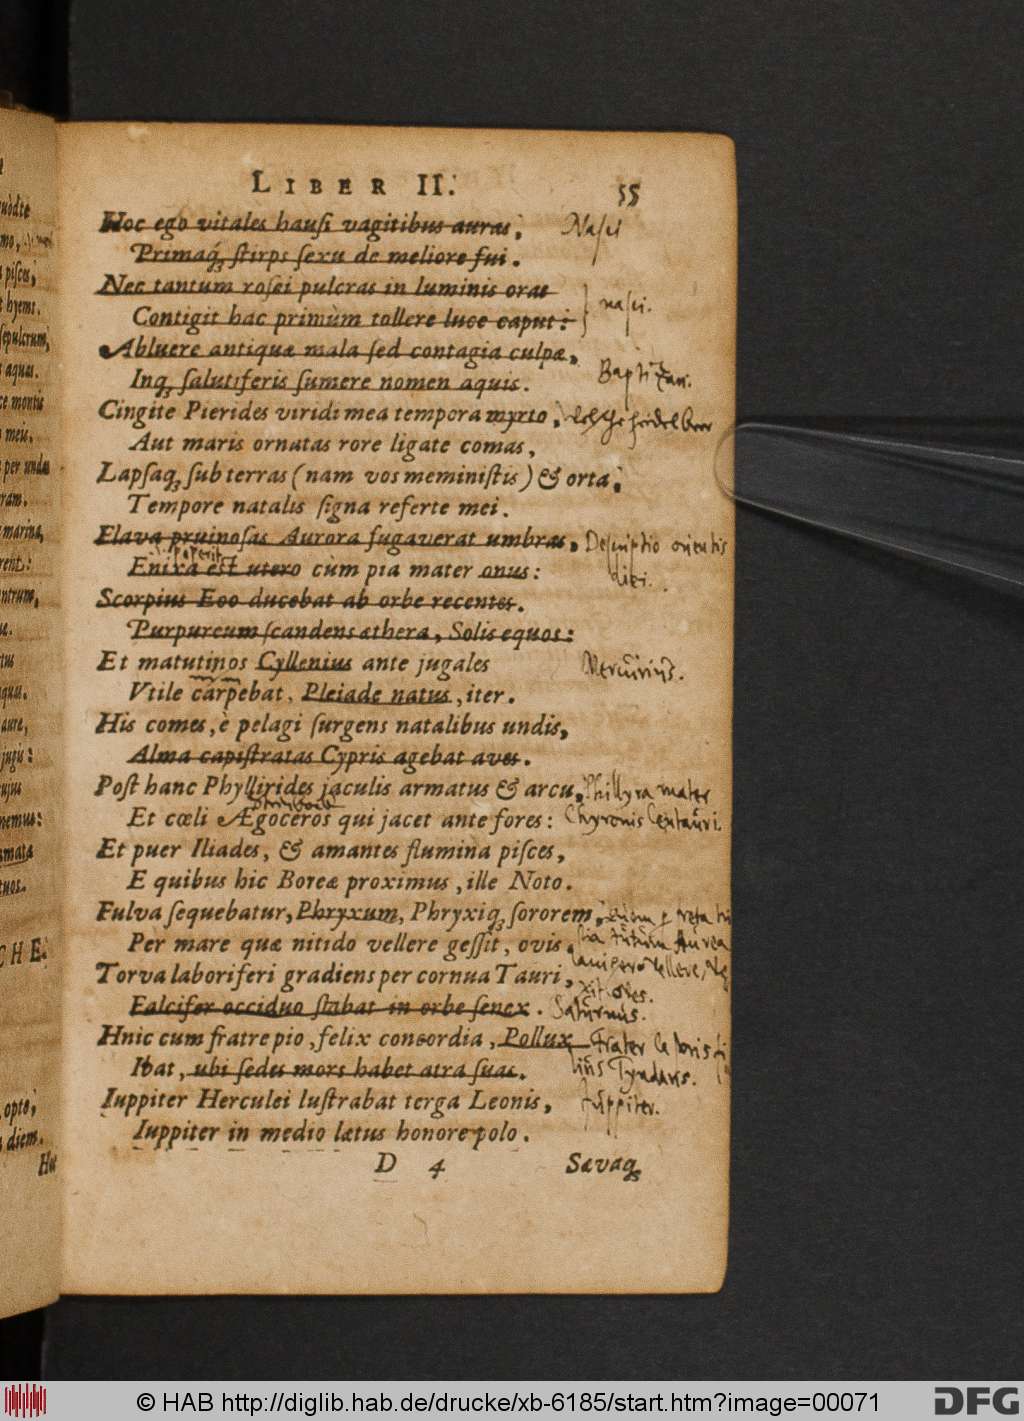 LIBER II. 55
Hoc ego vitales hausi vagitibus auras, Nasci
Primaq́; stirps sexu de meliore fui.
Nec tantum rosei pulcras in luminis oras
Contigit hac primùm tollere luce caput: nasci.
Abluere antiquæ mala sed contagia culpæ,
Inq; salutiferis sumere nomen aquis. Baptizari.
Cingite Pierides viridi mea tempora myrto,
Aut maris ornatas rore ligate comas,
Lapsaq; sub terras (nam vos meministis) & orta,
Tempore natalis signa referte mei.
Elava pruinosas Aurora fugaverat umbras, Descriptio orientis
peperit
Enixa est utero cùm pia mater onus: diei.
Scorpius Eoo ducebat ab orbe recentes.
Purpureum scandens æthera, Solis equos:
Et matutinos Cyllenius ante jugales Mercurius.
Vtile carpebat, Pleiade natus, iter.
His comes, è pelagi surgens natalibus undis,
Alma capistratas Cypris agebat aves.
Post hanc Phyllirides jaculis armatus & arcu, Phillyra mater
Et cœli Ægoceros qui jacet ante fores: Chyronis Centauri.
Et puer Iliades, & amantes flumina pisces,
E quibus hic Boreæ proximus, ille Noto.
Fulva sequebatur, Phryxum, Phryxiq; sororem,
Per mare quæ nitido vellere gessit, ovis. Aurea
Torva laboriferi gradiens per cornua Tauri,
Falcifer occiduo stabat in orbe senex. Saturnus.
Huic cum fratre pio, felix concordia, Pollux frater Castoris
Ibat, ubi sedes mors habet atra suas. Tyndaris.
Iuppiter Herculei lustrabat terga Leonis, Juppiter.
Iuppiter in medio lætus honore polo.
D 4 Sævaq;
quòdte
pisces,
hyems.
sepulcrum,
aquas.
ce montis
meis.
per undas
marina,
aure,
jugis:
nemus:
CHE.
opto,
diem.
© HAB http://diglib.hab.de/drucke/xb-6185/start.htm?image=00071
DFG